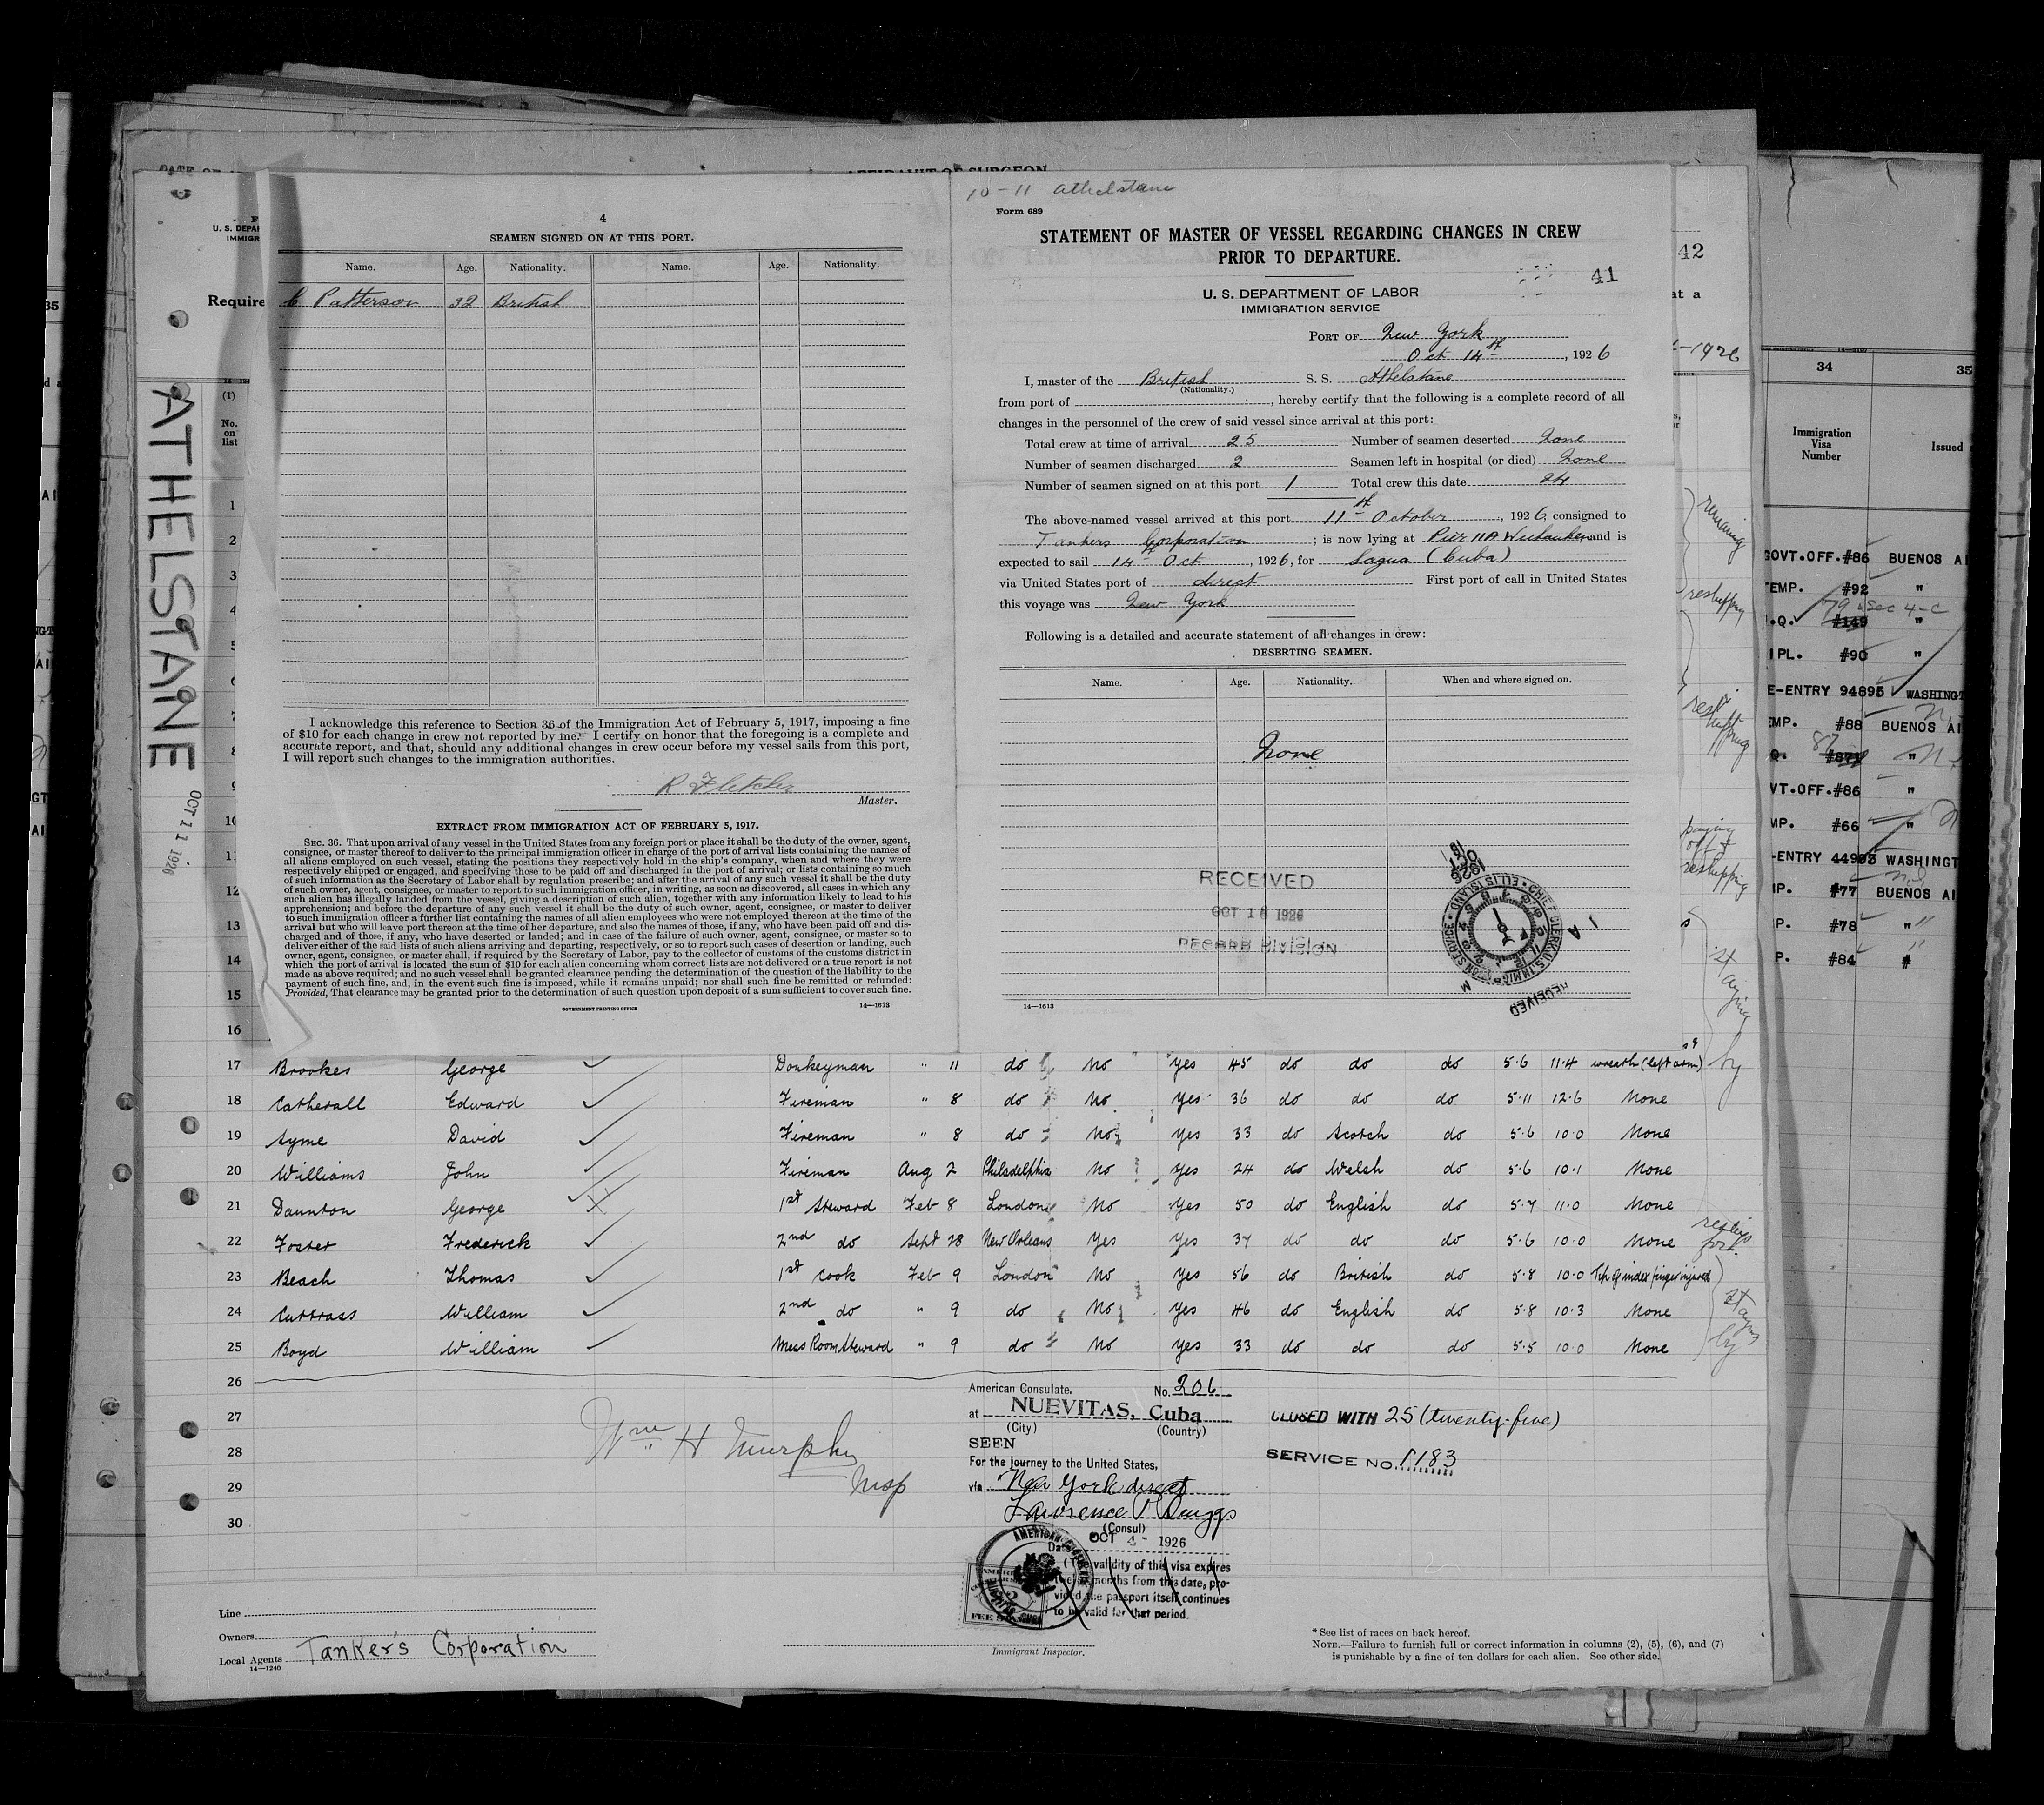 DATE OF
AFFIDAVIT OF SURGEON
10-11 Athelstane
4
SEAMEN SIGNED ON AT THIS PORT.
Name. Age. Nationality. Name. Age. Nationality.
C Patterson 32 British
I acknowledge this reference to Section 36 of the Immigration Act of February 5, 1917, imposing a fine
of $10 for each change in crew not reported by me. I certify on honor that the foregoing is a complete and
accurate report, and that, should any additional changes in crew occur before my vessel sails from this port,
I will report such changes to the immigration authorities.
R Fletcher
Master.
EXTRACT FROM IMMIGRATION ACT OF FEBRUARY 5, 1917.
SEC. 36. That upon arrival of any vessel in the United States from any foreign port or place it shall be the duty of the owner, agent,
consignee, or master thereof to deliver to the principal immigration officer in charge of the port of arrival lists containing the names of
all aliens employed on such vessel, stating the positions they respectively hold in the ship's company, when and where they were
respectively shipped or engaged, and specifying those to be paid off and discharged in the port of arrival; or lists containing so much
of such information as the Secretary of Labor shall by regulation prescribe; and after the arrival of any such vessel it shall be the duty
of such owner, agent, consignee, or master to report to such immigration officer, in writing, as soon as discovered, all cases in which any
such alien has illegally landed from the vessel, giving a description of such alien, together with any information likely to lead to his
apprehension; and before the departure of any such vessel it shall be the duty of such owner, agent, consignee, or master to deliver
to such immigration officer a further list containing the names of all alien employees who were not employed thereon at the time of the
arrival but who will leave port thereon at the time of her departure, and also the names of those, if any, who have been paid off and dis-
charged and of those, if any, who have deserted or landed; and in case of the failure of such owner, agent, consignee, or master so to
deliver either of the said lists of such aliens arriving and departing, respectively, or so to report such cases of desertion or landing, such
owner, agent, consignee, or master shall, if required by the Secretary of Labor, pay to the collector of customs of the customs district in
which the port of arrival is located the sum of $10 for each alien concerning whom correct lists are not delivered or a true report is not
made as above required; and no such vessel shall be granted clearance pending the determination of the question of the liability to the
payment of such fine, and, in the event such fine is imposed, while it remains unpaid; nor shall such fine be remitted or refunded:
Provided, That clearance may be granted prior to the determination of such question upon deposit of a sum sufficient to cover such fine.
GOVERNMENT PRINTING OFFICE
14—1613
Form 689
STATEMENT OF MASTER OF VESSEL REGARDING CHANGES IN CREW
PRIOR TO DEPARTURE.
41
U. S. DEPARTMENT OF LABOR
IMMIGRATION SERVICE
PORT OF New York
Oct 14th, 1926
I, master of the British S. S. Athelstane
(Nationality.)
from port of , hereby certify that the following is a complete record of all
changes in the personnel of the crew of said vessel since arrival at this port:
Total crew at time of arrival 25 Number of seamen deserted None
Number of seamen discharged 2 Seamen left in hospital (or died) None
Number of seamen signed on at this port 1 Total crew this date 24
The above-named vessel arrived at this port 11th October, 1926, consigned to
Tankers Corporation; is now lying at Pier 11A Weehauken and is
expected to sail 14th Oct, 1926, for Sagua (Cuba)
via United States port of direct First port of call in United States
this voyage was New York
Following is a detailed and accurate statement of all changes in crew:
DESERTING SEAMEN.
Name. Age. Nationality. When and where signed on.
None
RECEIVED
OCT 16 1926
RECORD DIVISION
CHIEF CLERK U.S. IMMIGRATION SERVICE • ELLIS ISLAND
RECEIVED
14—1613
U. S. DEPA
IMMIGR
Require
(1)
No.
on
list
ATHELSTANE
OCT 11 1926
42
at a
1926
remaining
reshipping
reshipping
paying
off &
reshipping
staying
by
1
2
3
4
5
6
7
8
9
10
11
12
13
14
15
16
17 Brookes George Donkeyman " 11 do No Yes 45 do do do 5.6 11.4 wreath (left arm)
18 Catherall Edward Fireman " 8 do No Yes 36 do do do 5.11 12.6 None
19 Syme David Fireman " 8 do No Yes 33 do Scotch do 5.6 10.0 None
20 Williams John Fireman Aug 2 Philadelphia No Yes 24 do Welsh do 5.6 10.1 None
21 Daunton George 1st Steward Feb 8 London No Yes 50 do English do 5.7 11.0 None
22 Foster Frederick 2nd do Sept 28 New Orleans Yes Yes 37 do do do 5.6 10.0 None
23 Beach Thomas 1st Cook Feb 9 London No Yes 56 do British do 5.8 10.0 Tip of index finger injured
24 Cuttrass William 2nd do " 9 do No Yes 46 do English do 5.8 10.3 None
25 Boyd William Mess Room Steward " 9 do No Yes 33 do do do 5.5 10.0 None
staying
by
26
27
28
29
30
Wm H Murphy
Insp
American Consulate. No. 206
at NUEVITAS, Cuba
(City) (Country)
SEEN
For the journey to the United States,
via New York direct
Lawrence P Briggs
(Consul)
Date OCT 4 - 1926
(The validity of this visa expires
twelve months from this date, pro-
vided the passport itself continues
to be valid for that period.
CLOSED WITH 25 (twenty-five)
SERVICE NO. 1183
Immigrant Inspector.
Line
Owners
Local Agents Tanker's Corporation
14—1240
* See list of races on back hereof.
NOTE.—Failure to furnish full or correct information in columns (2), (5), (6), and (7)
is punishable by a fine of ten dollars for each alien. See other side.
34 35
Immigration
Visa
Number
Issued
GOVT.OFF.#86 BUENOS AI
TEMP. #92 "
.Q. #149 79 Sec 4-C "
IPL. #90 "
E-ENTRY 94895 WASHINGT
EMP. #88 BUENOS AI
Q. 87 "
VT.OFF.#86 "
MP. #66 "
-ENTRY 44903 WASHINGT
IP. #77 BUENOS AI
P. #78 "
P. #84 "